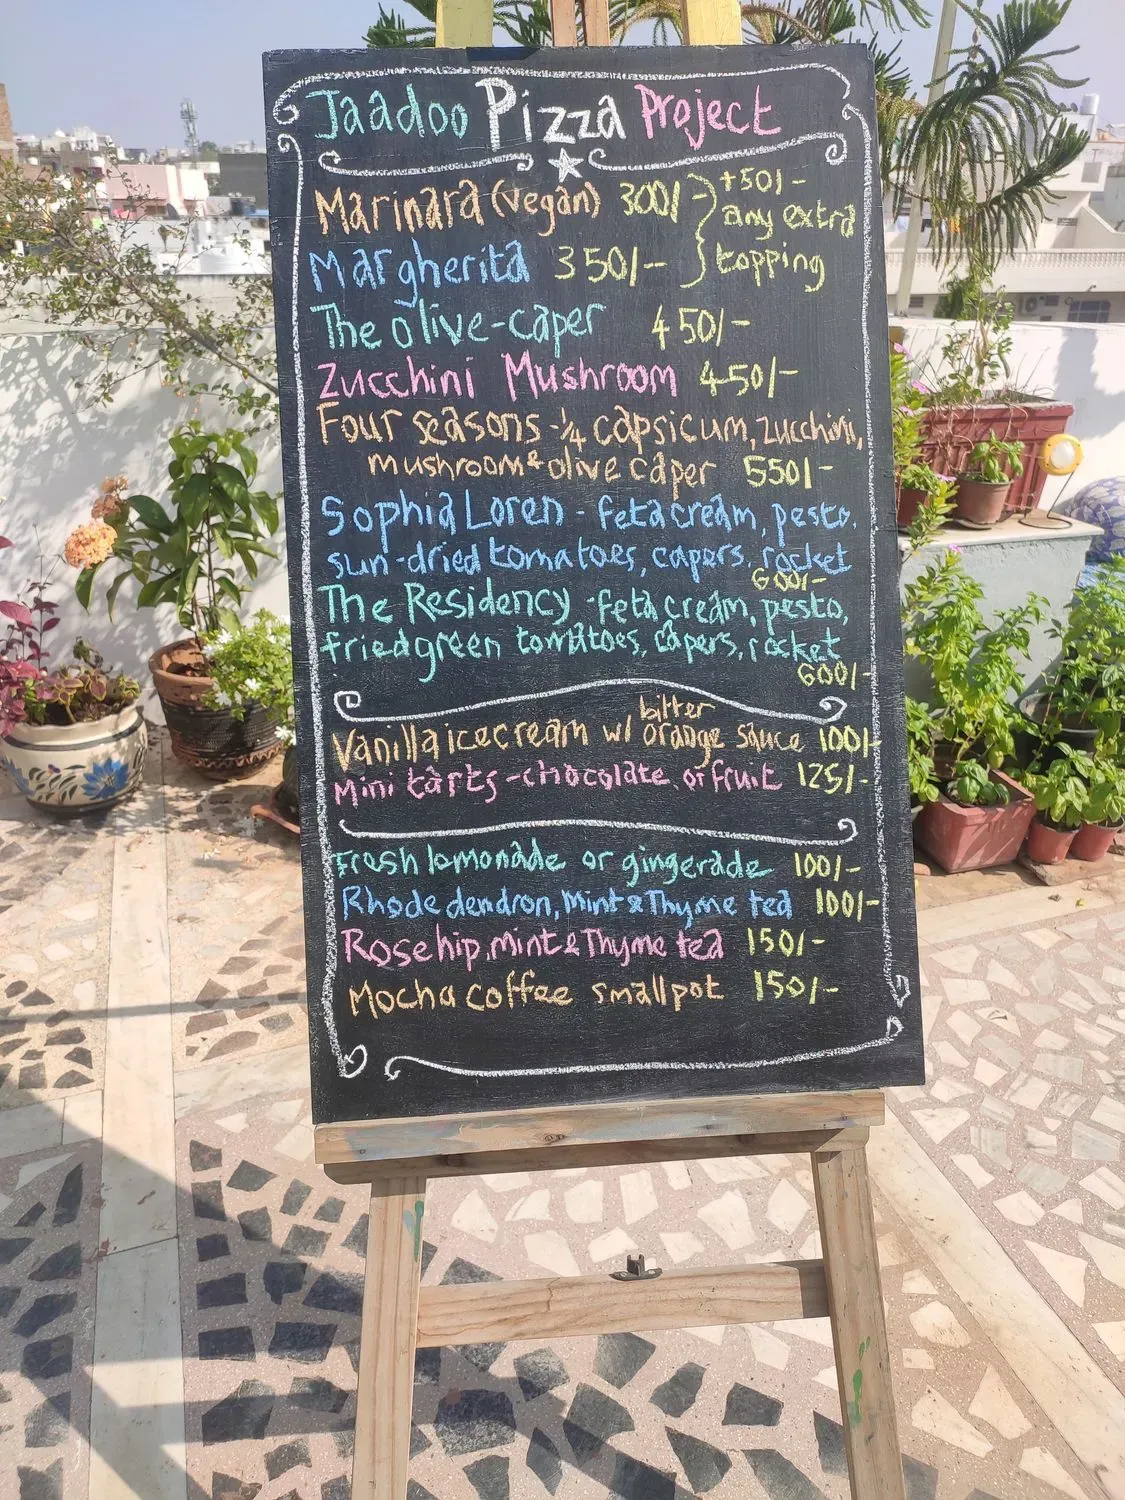 Jaadoo Pizza Project
Marinara (Vegan) 300/- +50/-
any extra
Margherita 350/- topping
The olive-caper 450/-
Zucchini Mushroom 450/-
Four seasons - 1/4 capsicum, zucchini,
mushroom & olive caper 550/-
Sophia Loren - feta cream, pesto,
sun-dried tomatoes, capers, rocket
600/-
The Residency - feta cream, pesto,
fried green tomatoes, capers, rocket
600/-
Vanilla icecream w/ bitter orange sauce 100/-
Mini tarts - chocolate or fruit 125/-
Fresh lemonade or gingerade 100/-
Rhodedendron, Mint & Thyme tea 100/-
Rosehip, mint & Thyme tea 150/-
Mocha coffee small pot 150/-